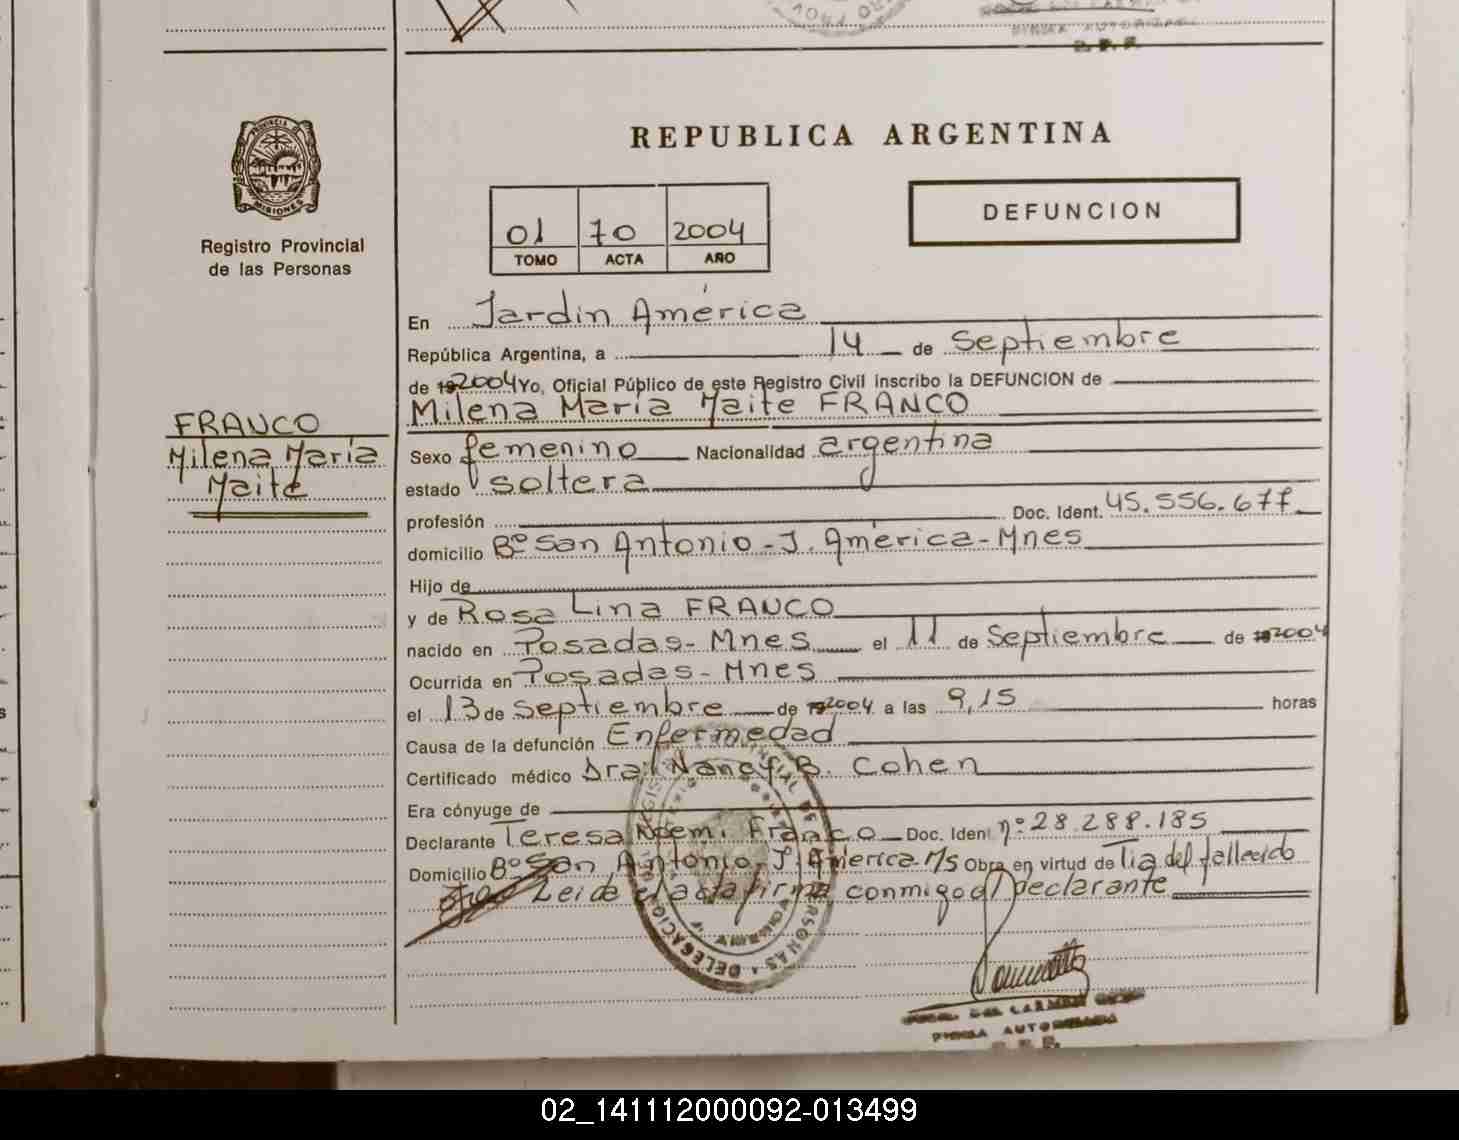 PROVINCIA DE
MISIONES
Registro Provincial
de las Personas
FRANCO
Milena María
Maite
REPUBLICA ARGENTINA
01 70 2004
TOMO ACTA AÑO
DEFUNCION
En Jardin América
República Argentina, a 14 de Septiembre
de 192004 Yo, Oficial Público de este Registro Civil inscribo la DEFUNCION de
Milena María Maite FRANCO
Sexo femenino Nacionalidad argentina
estado soltera
profesión Doc. Ident. 45.556.677
domicilio Bº San Antonio - J. América - Mnes
Hijo de
y de Rosa Lina FRANCO
nacido en Posadas - Mnes el 11 de Septiembre de 192004
Ocurrida en Posadas - Mnes
el 13 de Septiembre de 192004 a las 9,15 horas
Causa de la defunción Enfermedad
Certificado médico Dra. Nancy B. Cohen
Era cónyuge de
Declarante Teresa Noemi Franco Doc. Ident nº 28.288.185
Domicilio Bº San Antonio - J. América - Ms Obra en virtud de Tia del fallecido
Leida el acta firma conmigo el declarante
DEL CARMEN
FIRMA AUTORIZADA
02_141112000092-013499